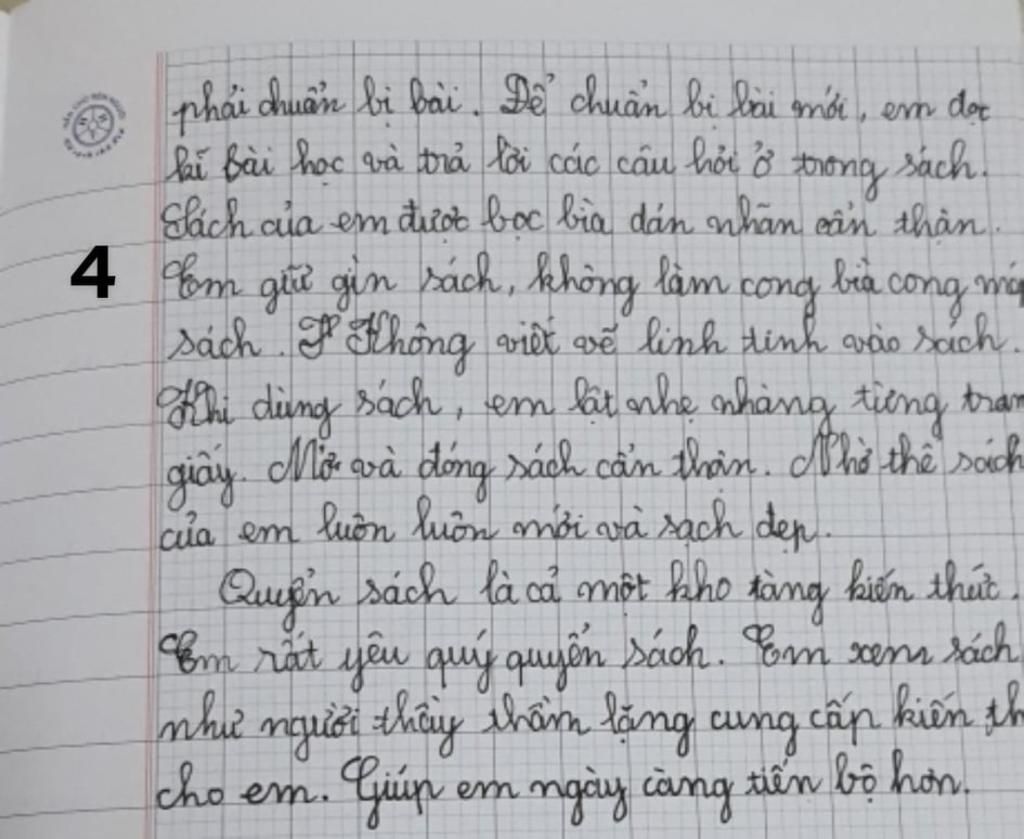 phải chuẩn bị bài. Để chuẩn bị bài mới, em đọc
kĩ bài học và trả lời các câu hỏi ở trong sách.
Sách của em được bọc bìa dán nhãn cẩn thận.
4
Em giữ gìn sách, không làm cong bìa cong
sách. Không viết vẽ linh tinh vào sách.
Khi dùng sách, em lật nhẹ nhàng từng tran
giấy. Mở và đóng sách cẩn thận. Nhờ thế sách
của em luôn luôn mới và sạch đẹp.
Quyển sách là cả một kho tàng kiến thức.
Em rất yêu quý quyển sách. Em xem sách
như người thầy thầm lặng cung cấp kiến th
cho em. Giúp em ngày càng tiến bộ hơn.